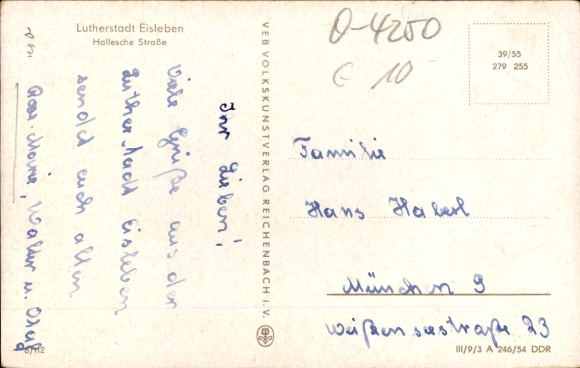 Lutherstadt Eisleben
Hallesche Straße
Ihr Lieben!
Viele Grüße aus der
Lutherstadt Eisleben
sendet euch allen
Rose-Marie, Walter u. Olaf
VEB VOLKSKUNSTVERLAG REICHENBACH I. V.
O-4250
€ 10
39/55
279 255
Familie
Hans Haberl
München 9
Weißenseestraße 23
8/112
III/9/3 A 246/54 DDR